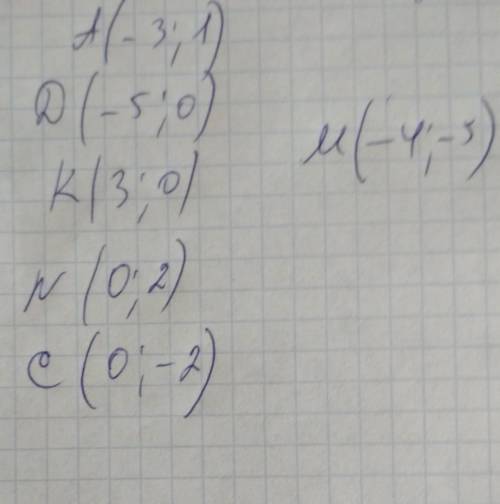 А(-3; 1)
Д(-5; 0)
К(3; 0)
N(0; 2)
С(0; -2)
М(-4; -5)